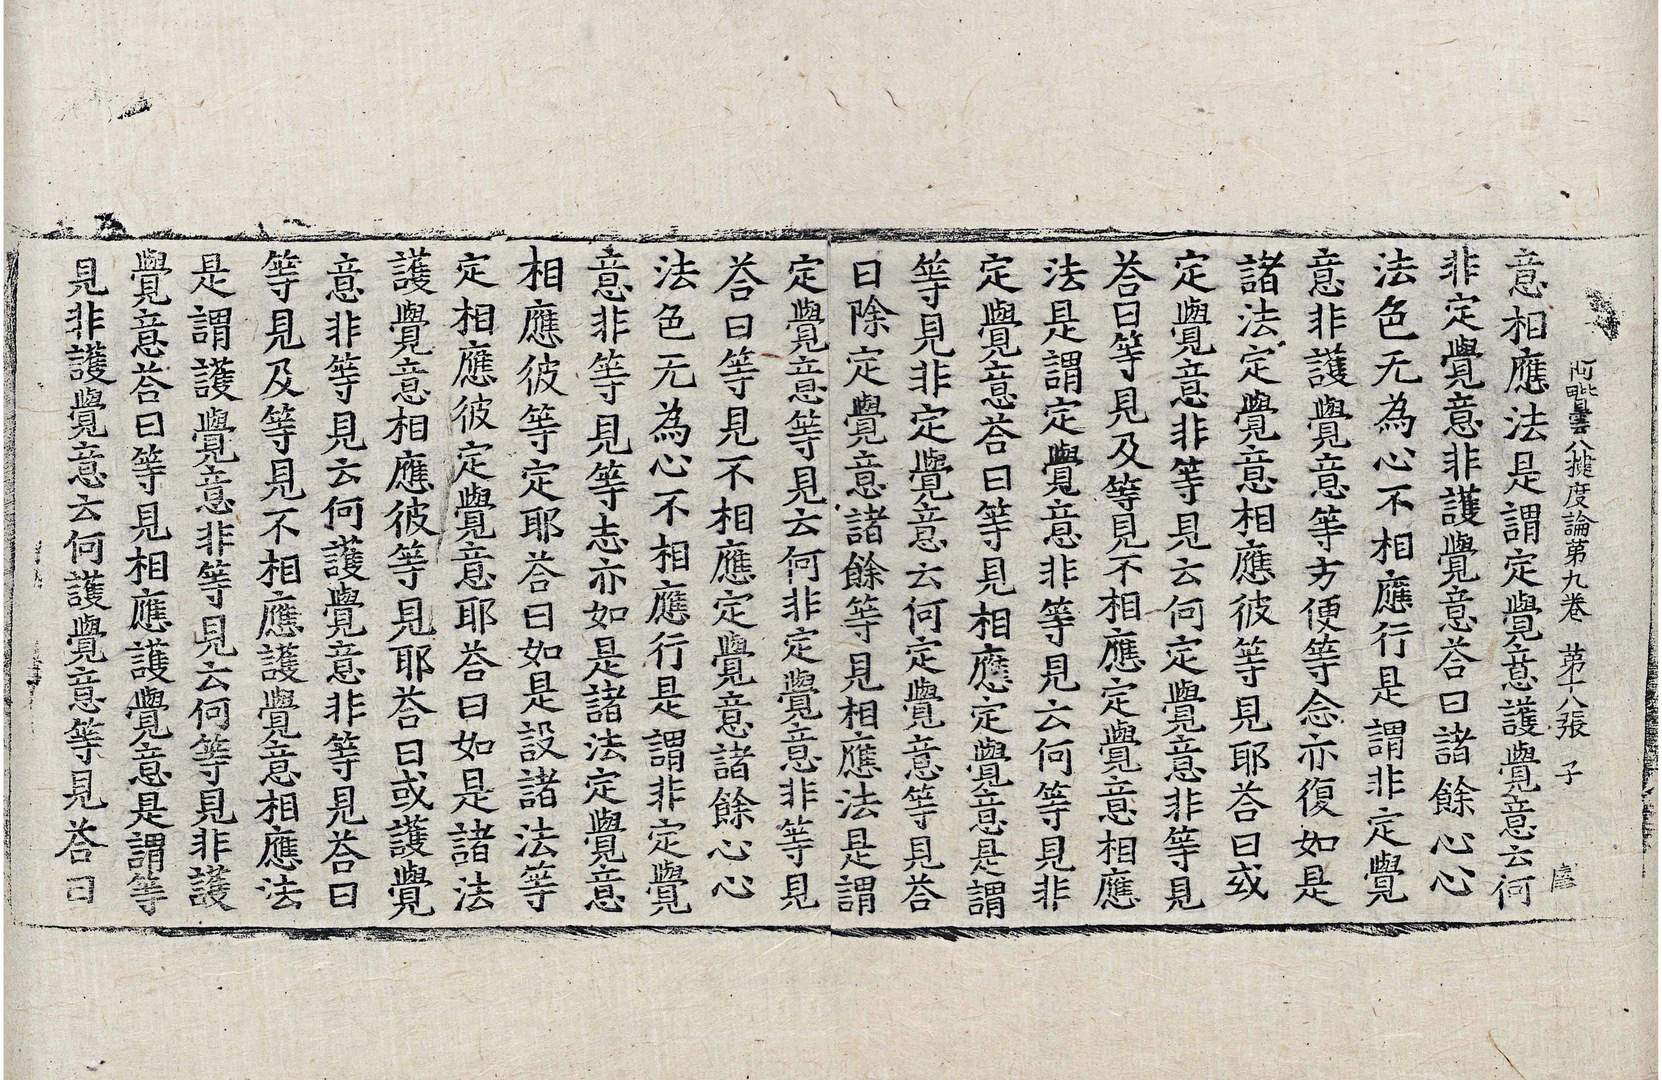 阿毗曇八揵度論苐九卷 苐十八張 子
意相應法是謂定覺意護覺意云何
非定覺意非護覺意荅曰諸餘心心
法色无為心不相應行是謂非定覺
意非護覺意等方便等念亦復如是
諸法定覺意相應彼等見耶荅曰或
定覺意非等見云何定覺意非等見
荅曰等見及等見不相應定覺意相應
法是謂定覺意非等見云何等見非
定覺意荅曰等見相應定覺意是謂
等見非定覺意云何定覺意等見荅
曰除定覺意諸餘等見相應法是謂
定覺意等見云何非定覺意非等見
荅曰等見不相應定覺意諸餘心心
法色无為心不相應行是謂非定覺
意非等見等志亦如是諸法定覺意
相應彼等定耶荅曰如是設諸法等
定相應彼定覺意耶荅曰如是諸法
護覺意相應彼等見耶荅曰或護覺
意非等見云何護覺意非等見荅曰
等見及等見不相應護覺意相應法
是謂護覺意非等見云何等見非護
覺意荅曰等見相應護覺意是謂等
見非護覺意云何護覺意等見荅曰